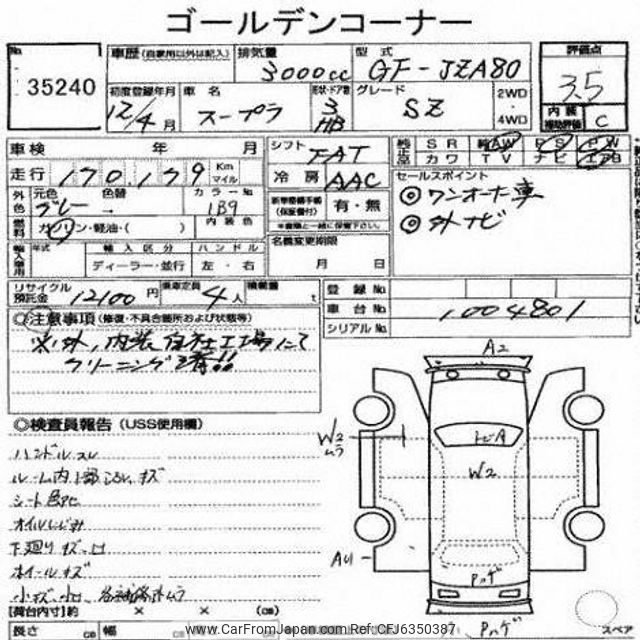 ゴールデンコーナー
No
35240
車歴 (自家用以外は記入)
排気量
3000cc
型式
GF-JZA80
評価点
3.5
内装
補助評価
C
初度登録年月
12/4月
車名
スープラ
形状・ドア数
3
HB
グレード
SZ
2WD
4WD
車検 年 月
シフト
FAT
SR AW PS PW
カワ TV ナビ エアB
走行 170,179 Km
マイル
冷房
AAC
セールスポイント
◎ワンオーナー車
◎外ナビ
外色
元色 色替
グレー →
カラーNo
1B9
新車整備手帳
(保証書付)
有・無
燃料
ガソリン・軽油・( )
内装色
名義変更期限
月 日
輸入車用
年式
輸入区分
ハンドル
ディーラー・並行
左・右
リサイクル
預託金
12100円
乗車定員
4人
積載量
t
登録No.
車台No.
1004801
シリアルNo.
◎注意事項 (修復・不具合箇所および状態等)
※外、内装自社工場にて
クリーニング済!!
◎検査員報告 (USS使用欄)
ハンドルスレ
ルーム内1部こスレ、キズ
シート色アセ
オイルにじみ
下廻りキズ、凹
ホイールキズ
小キズ、小凹、各補修跡ムラ
A2
W2
ムラ
トビA
W2
A4
Pハゲ
Pハゲ
スペア
【荷台内寸】約 × × (cm)
長さ cm 幅 cm
www.CarFromJapan.com Ref:CFJ6350387